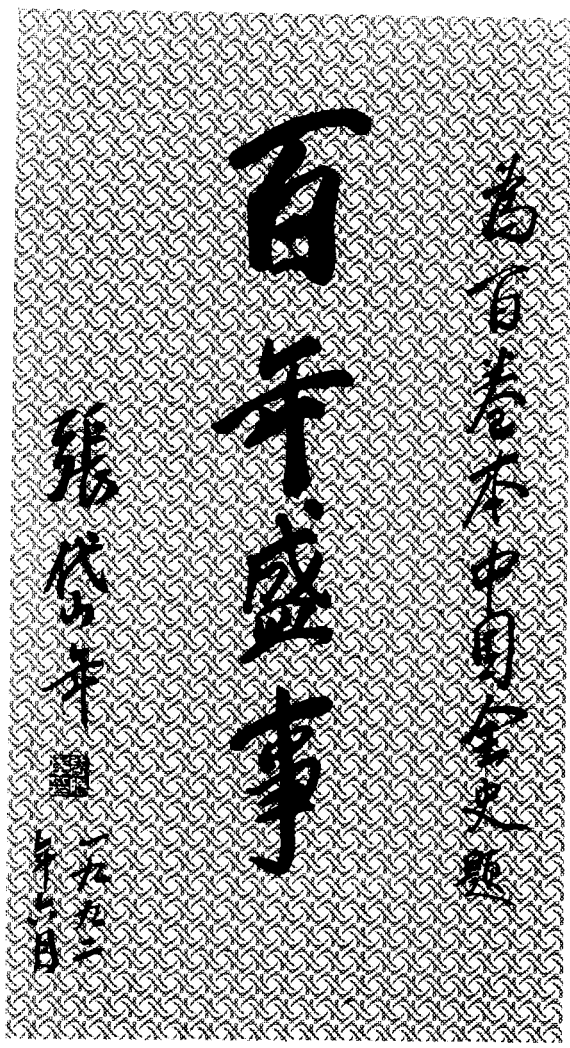 為百卷本中国全史題
百年盛事
張岱年
一九九二
年六月